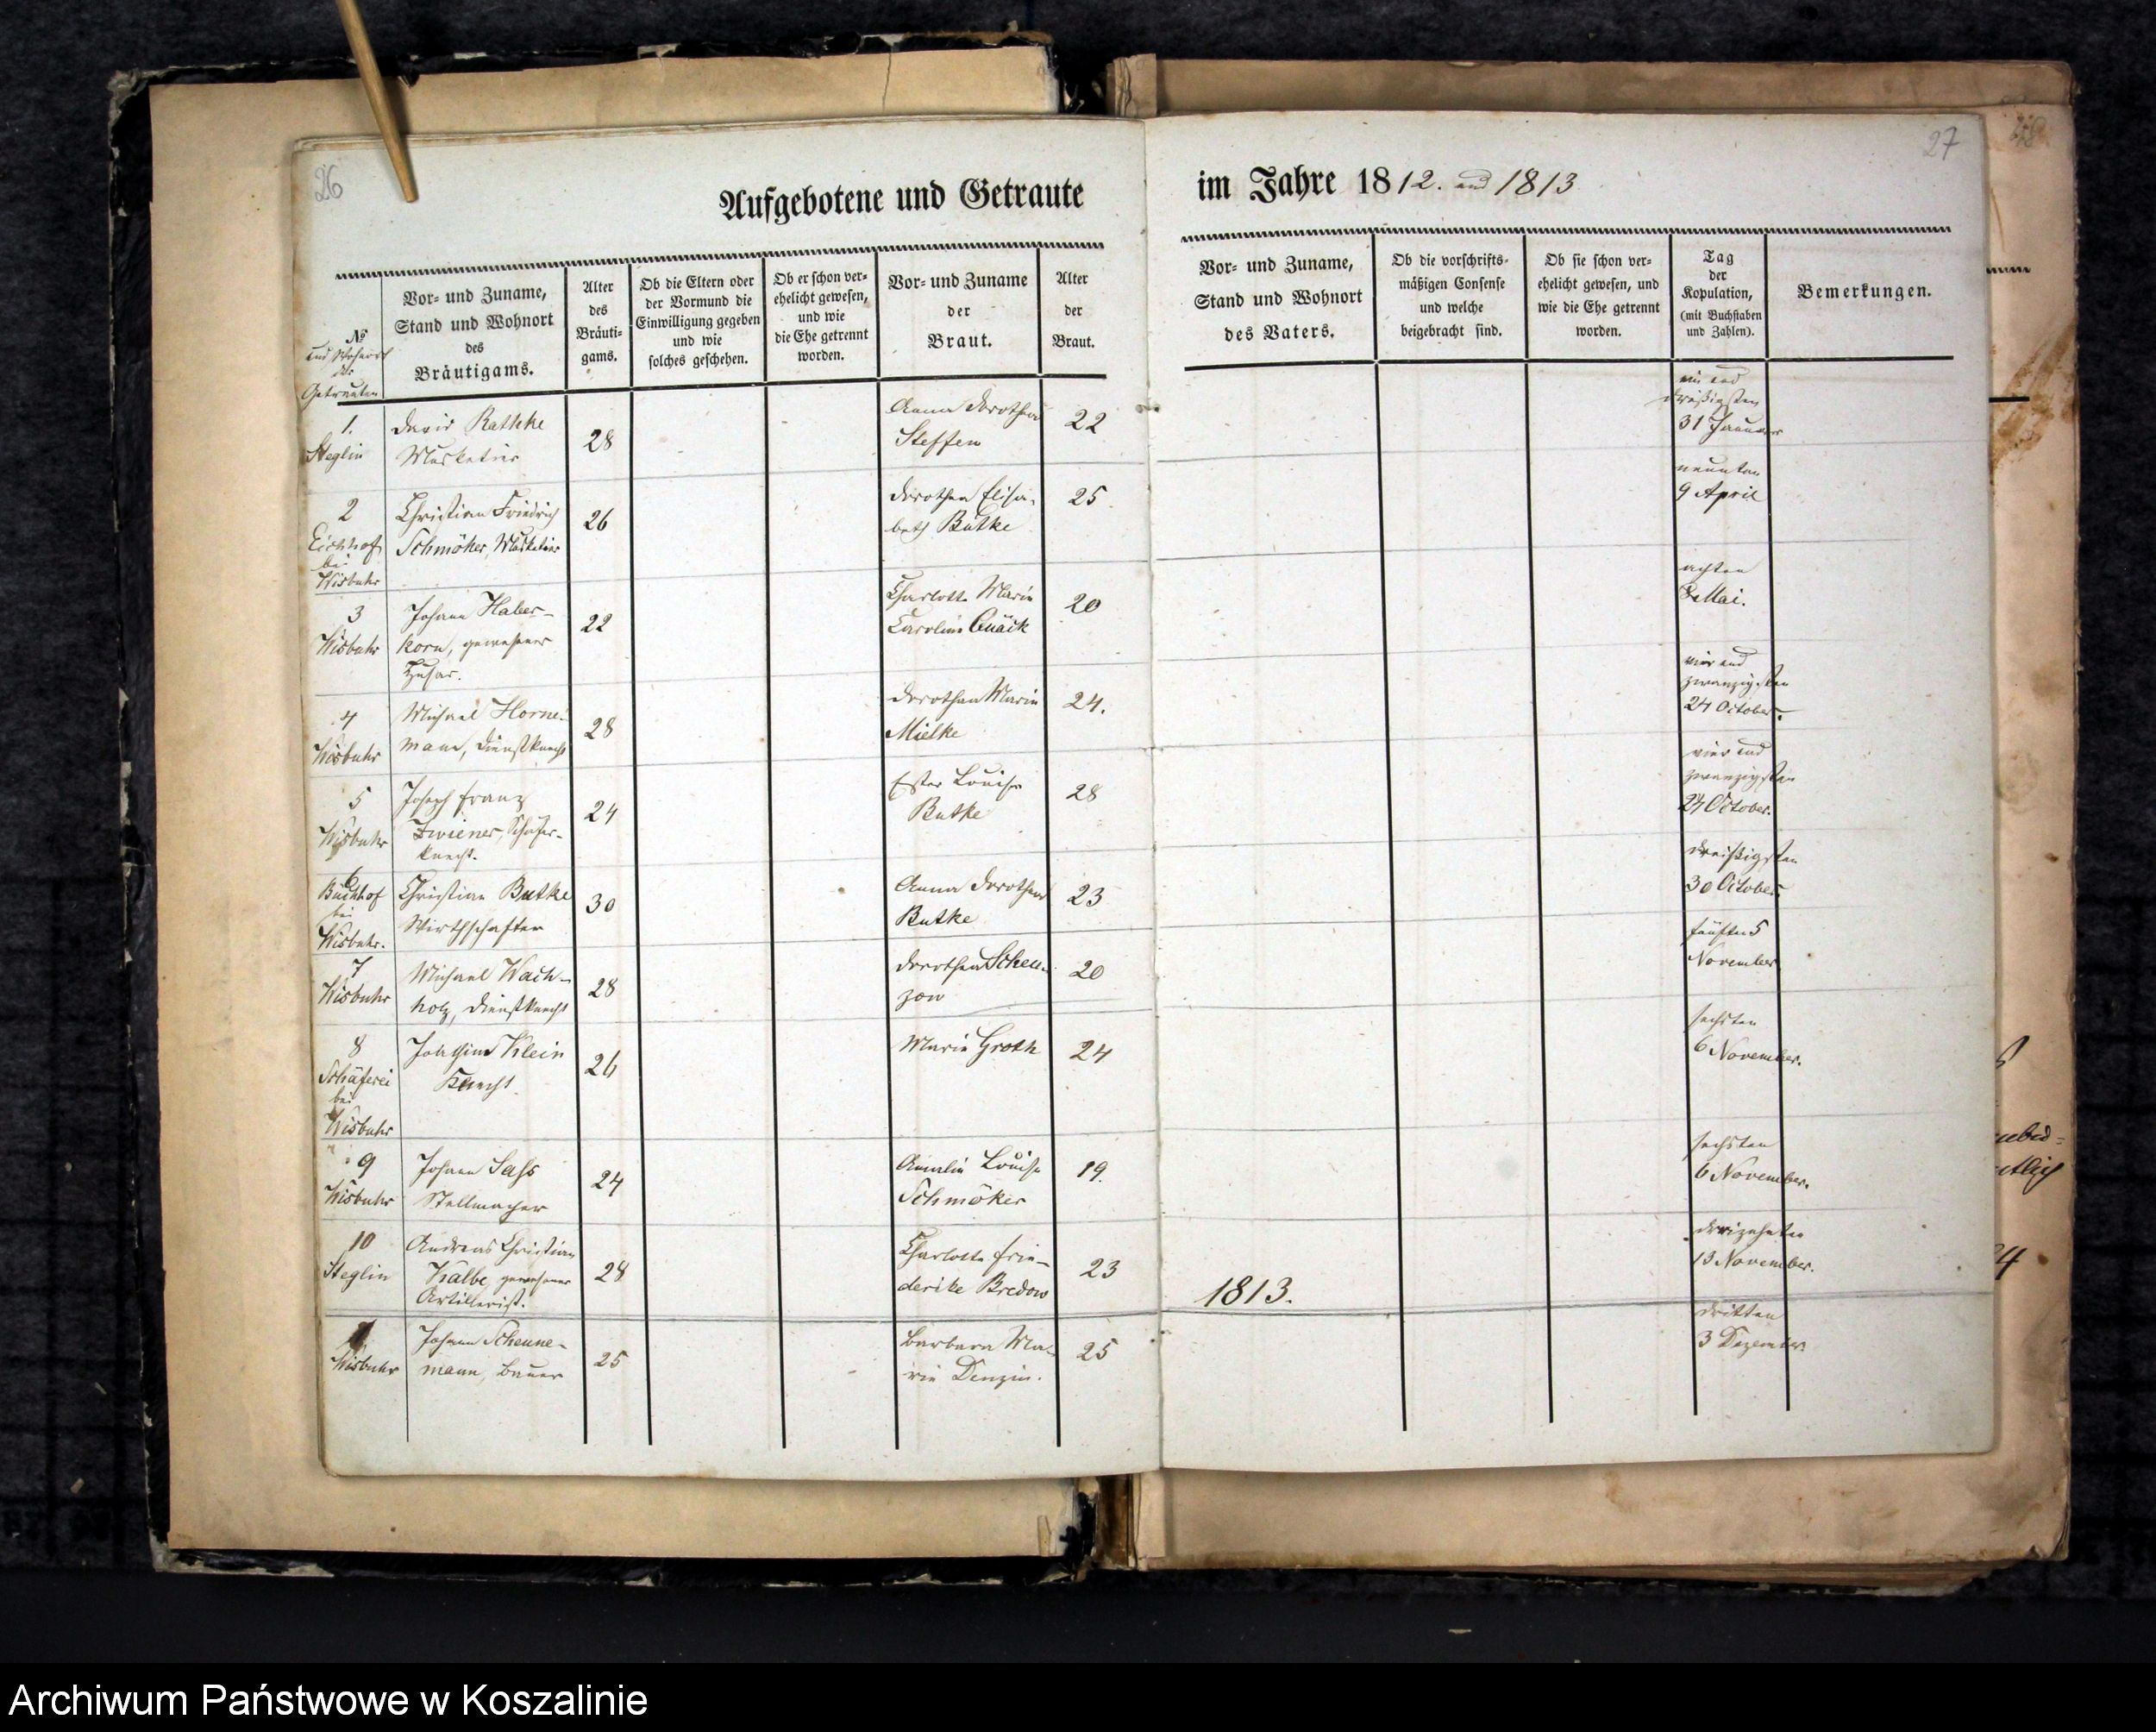 26
27
48
Aufgebotene und Getraute
im Jahre 1812. und 1813
№
und Wohnort
der
Getrauten
Vor- und Zuname,
Stand und Wohnort
des
Bräutigams.
Alter
des
Bräuti-
gams.
Ob die Eltern oder
der Vormund die
Einwilligung gegeben
und wie
solches geschehen.
Ob er schon ver-
ehelicht gewesen,
und wie
die Ehe getrennt
worden.
Vor- und Zuname
der
Braut.
Alter
der
Braut.
Vor- und Zuname,
Stand und Wohnort
des Vaters.
Ob die vorschrifts-
mäßigen Consense
und welche
beigebracht sind.
Ob sie schon ver-
ehelicht gewesen, und
wie die Ehe getrennt
worden.
Tag
der
Kopulation,
(mit Buchstaben
und Zahlen).
Bemerkungen.
1.
Steglin
David Rathke
Musketier
28
Anna Dorothea
Steffen
22
ein und
dreißigsten
31 Januar
2
Eichhof
bei
Wisbuhr
Christian Friedrich
Schmöker, Musketier
26
Dorothea Elisa-
beth Butke
25
neunten
9 April
3
Wisbuhr
Johann Haber-
korn, gewesener
Husar.
22
Charlotte Marie
Caroline Quäck
20
achten
8 Mai.
4
Wisbuhr
Michael Horne-
mann, Dienstknecht
28
Dorothea Marie
Mielke
24.
vier und
zwanzigsten
24 October.
5
Wisbuhr
Joseph Franz
Zwiener, Schäfer-
knecht.
24
Ester Louise
Butke
28
vier und
zwanzigsten
24 October.
6
Buchhof
bei
Wisbuhr.
Christian Butke
Wirthschafter
30
Anna Dorothea
Butke
23
dreißigsten
30 October.
7
Wisbuhr
Michael Wach-
holz, Dienstknecht
28
Dorothea Scheu-
zow
20
fünften 5
November
8
Schäferei
bei
Wisbuhr
Joachim Klein
Knecht
26
Marie Groth
24
sechsten
6 November.
9
Wisbuhr
Johann Sass
Stellmacher
24
Amalie Louise
Schmöker
19.
sechsten
6 November.
10
Steglin
Andreas Christian
Kalbe, gewesener
Artillerist.
28
Charlotte Frie-
derike Bredow
23
dreizehnten
13 November.
1813.
Wisbuhr
Johann Scheune-
mann, Bauer
25
Barbara Ma-
rie Denzin.
25
dritten
3 Dezember
Archiwum Państwowe w Koszalinie